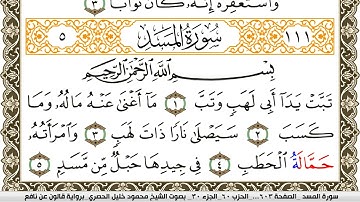 وَاسْتَغْفِرْهُ إِنَّهُۥ كَانَ تَوَّابًا ٣
١١١ سُورَةُ الْمَسَدِ ٥
بِسْمِ اللَّهِ الرَّحْمَٰنِ الرَّحِيمِ
تَبَّتْ يَدَآ أَبِي لَهَبٍ وَتَبَّ ١ مَآ أَغْنَىٰ عَنْهُ مَالُهُۥ وَمَا
كَسَبَ ٢ سَيَصْلَىٰ نَارًا ذَاتَ لَهَبٍ ٣ وَامْرَأَتُهُۥ
حَمَّالَةُ الْحَطَبِ ٤ فِي جِيدِهَا حَبْلٌ مِّن مَّسَدٍ ٥
سورة المسد_ الصفحة ٦٠٣ ...._الحزب ٦٠_الجزء ٣٠_ بصوت الشيخ محمود خليل الحصري_ برواية قالون عن نافع